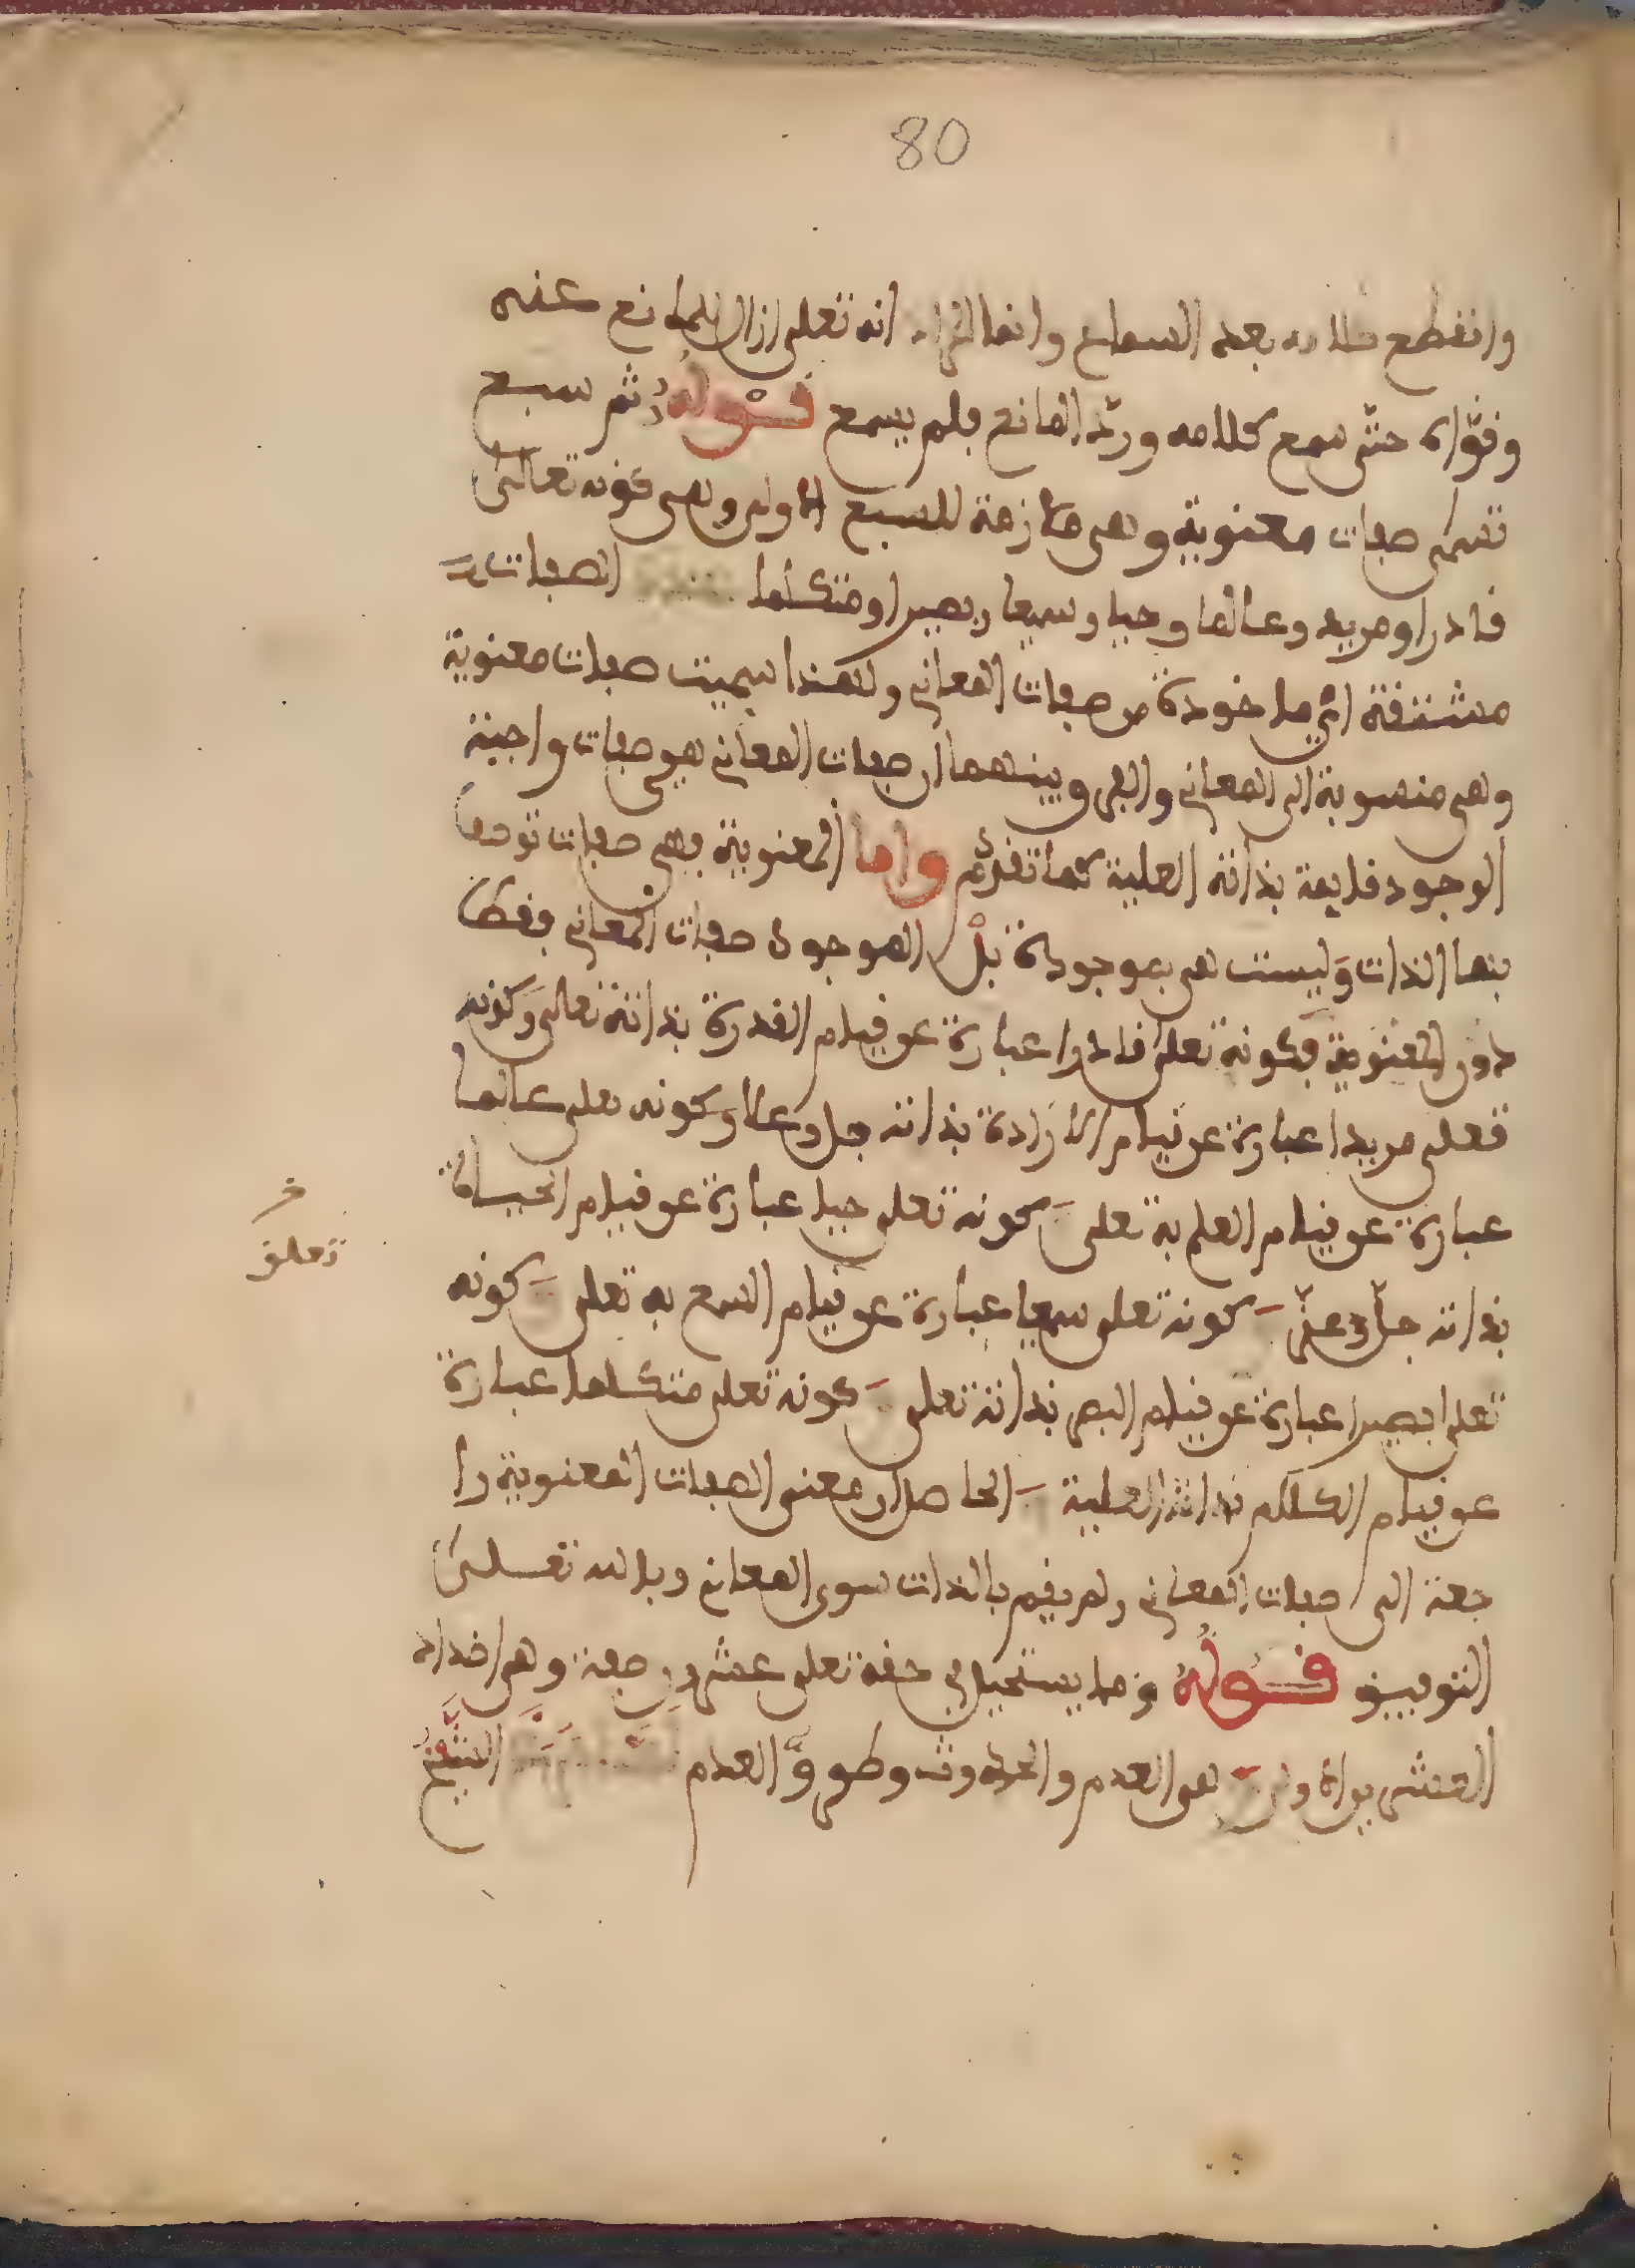 80
وانقطع كلامه بعد السماع وانما المراد انه تعلى ازال المانع عنه
وقواه حتى سمع كلامه ورد المانع فلم يسمع قوله ثم سبع
تسمى صفات معنوية وهي ملازمة للسبع الاولى وهي كونه تعالى
قادرا ومريد وعالما وحيا وسميعا وبصيرا ومتكلما الصفات
مشتقة اي ماخوذة من صفات المعاني ولهذا سميت صفات معنوية
وهي منسوبة الى المعاني والفرق بينهما ان صفات المعاني هي صفات واجبة
الوجود قديمة بذاته العلية كما تقدم واما المعنوية فهي صفات توصف
بها الذات وليست هي بموجودة بل الموجود صفات المعاني فقط
دون المعنوية فكونه تعلى قادرا عبارة عن قيام القدرة بذاته تعالى وكونه
تعلى مريدا عبارة عن قيام الارادة بذاته جل وعلا وكونه تعلى عالما
عبارة عن قيام العلم به تعلى وكونه تعلى حيا عبارة عن قيام الحياة
تعلق
بذاته جل وعلى وكونه تعلى سميعا عبارة عن قيام السمع به تعلى وكونه
تعلى بصيرا عبارة عن قيام البصر بذاته تعلى وكونه تعلى متكلما عبارة
عن قيام الكلام بذاته العلية والحاصل ان معنى الصفات المعنوية را
جعة الى صفات المعاني ولم يقم بالذات سوى المعاني وبالله تعلى
التوفيق قوله ومما يستحيل في حقه تعلى عشرون صفة وهي اضداد
العشرين الاولى وهي العدم والحدوث وطرو العدم الشيخ